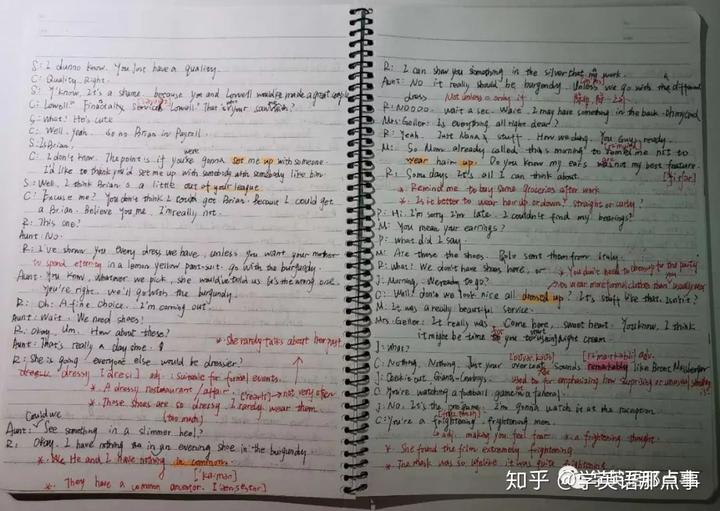 S: I dunno know. You just have a quality.
C: Quality. Right.
S: Y'know, it's a shame, because you and Lowell would've made a great couple
C: Lowell? Financial Services Lowell? That is your saw?
S: What? He's cute
C: Well. yeah. is no Brian in Payroll.
S: Is Brian?
C: I don't know. The point is if you're gonna set me up with someone
I'd like to think you'd set me up with somebody like him.
S: Well, I think Brian's a little out of your league.
C: Excuse me? You don't think I could get a Brian. Because I could get
a Brian. Believe you me. I'm really not.
R: This one?
Aunt: No.
R: I've shown you every dress we have, unless you want your mother
to spend eternity in a lemon yellow pant-suit. go with the burgundy.
Aunt: You know, whatever we pick, she would've told us it's the wrong one.
You're right. We'll go with the burgundy.
R: Oh. A fine choice. I'm coming out.
Aunt: Wait. We need shoes!
R: Okay. Um. How about these?
Aunt: That's really a day shoe.
* She rarely talks about her past.
R: She is going everyone else would be dressier?
dressy [dresi] adj: suitable for formal events.
* A dressy restaurant / affair.
not very often
* These shoes are so dressy I rarely wear them
(too much)
Could we
Aunt: See something in a slimmer heel?
R: Okay. I have nothing in an evening shoe in the burgundy.
* He and I have nothing in common.
* They have a common ancestor.
R: I can show you something in the silver that may work.
Aunt: No it really should be burgundy. Unless we go with the different
dress Not unless = only if
R: NOOOO. wait a sec. Wait. I may have something in the back. Oh my god.
Mrs. Geller: Is everything all right dear?
R: Yeah. Just Nana's stuff. How we doing. You guys ready
M: So Mom already called this morning to remind me not to
wear hair up. Do you know my ears are not my best feature.
R: Some days it's all I can think about.
* Remind me to buy some groceries after work
* Is it better to wear hair up or down? Straight or curly?
P: Hi. I'm sorry I'm late. I couldn't find my bearings?
M: You mean, your earrings?
P: What did I say.
M: Are those the shoes. Polo sent them from Italy.
R: What? We don't have shoes here, or
* You don't need to dress up for the party
J: Morning. We ready to go?
to wear more formal clothes than usually wear
C: Well don't we look nice all dressed up? It's stuff like that. Isn't it?
M: It was a really beautiful service.
Mrs. Geller: It really was. Come here, sweet heart. You know, I think
it might be time for you to start using night cream.
J: What?
C: Nothing. Nothing. Just your overcoat sounds remarkably like Brent Musburger
J: Check it out. Giants-Cowboys. Used to for emphasizing how surprising or unusual sth is
C: You're watching a football game in a funeral.
J: No. It's the pre game. I'm gonna watch it at the reception.
C: You're a frightening. frightening man.
adj. making you feel fear * a frightening thought.
* She found the film extremely frightening
* The mask was so lifelike it was quite frightening
知乎 @学英语那点事